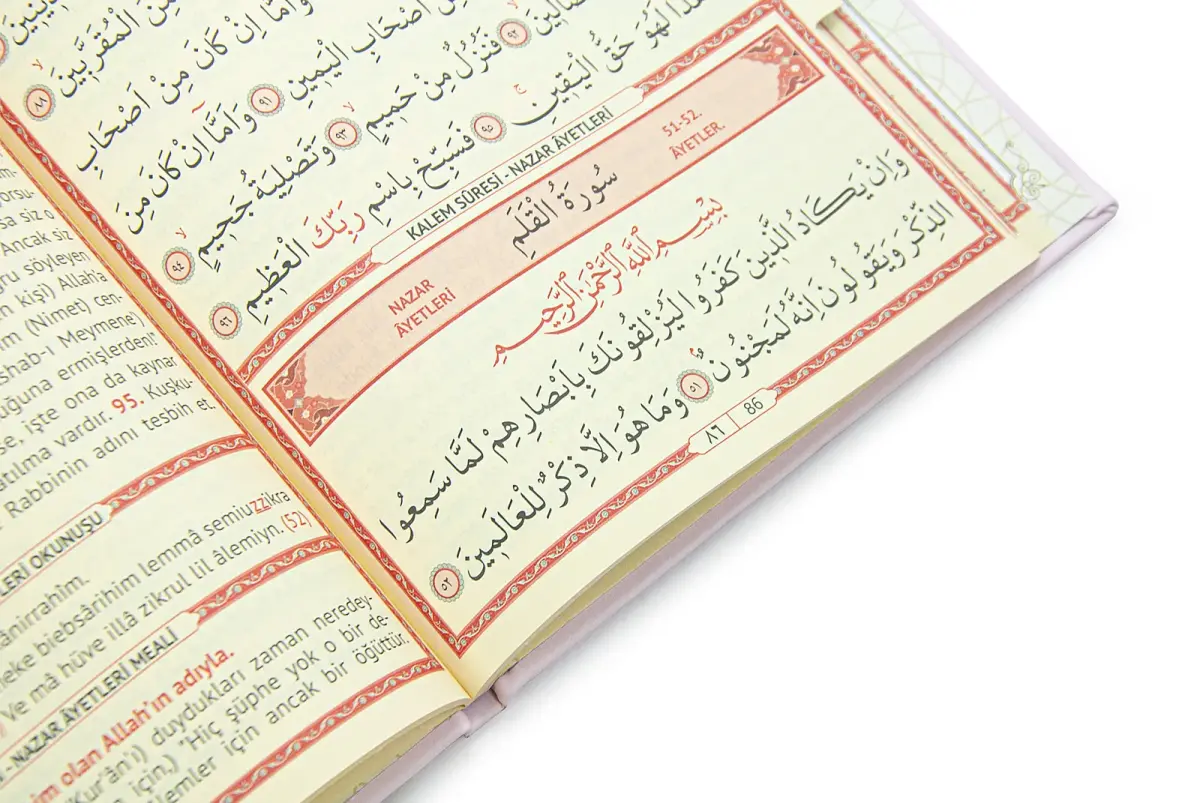 وَاَمَّٓا اِنْ
الْمُقَرَّبِينَ ٨٨
اَصْحَابِ الْيَمِينِ ٩١ وَاَمَّٓا اِنْ كَانَ مِنْ اَصْحَابِ
فَنُزُلٌ مِنْ حَمِيمٍ ٩٣ وَتَصْلِيَةُ جَحِيمٍ ٩٤
لَهُوَ حَقُّ الْيَقِينِ ٩٥ فَسَبِّحْ بِاسْمِ رَبِّكَ الْعَظِيمِ ٩٦
KALEM SÛRESİ - NAZAR ÂYETLERİ
NAZAR
ÂYETLERİ
سُورَةُ الْقَلَمِ
51-52.
ÂYETLER.
بِسْمِ اللّٰهِ الرَّحْمٰنِ الرَّحِيمِ
وَاِنْ يَكَادُ الَّذِينَ كَفَرُوا لَيُزْلِقُونَكَ بِاَبْصَارِهِمْ لَمَّا سَمِعُوا
الذِّكْرَ وَيَقُولُونَ اِنَّهُ لَمَجْنُونٌ ٥١ وَمَا هُوَ اِلَّا ذِكْرٌ لِلْعَالَمِينَ ٥٢
٨٦ | 86
sa siz o
Ancak siz
söyleyen
kişi) Allah'a
(Nimet) cen-
shab-ı Meymene)
ermişlerden!
işte ona da kaynar
vardır. 95. Kuşku-
Rabbinin adını tesbih et.
OKUNUŞU
biebsârihim lemmâ semiuzzikra
Ve mâ hüve illâ zikrul lil âlemiyn. (52)
- NAZAR ÂYETLERİ MEALİ
olan Allah'ın adıyla.
(Kur'ân'ı) duydukları zaman neredey-
için,) "Hiç şüphe yok o bir de-
için ancak bir öğüttür.